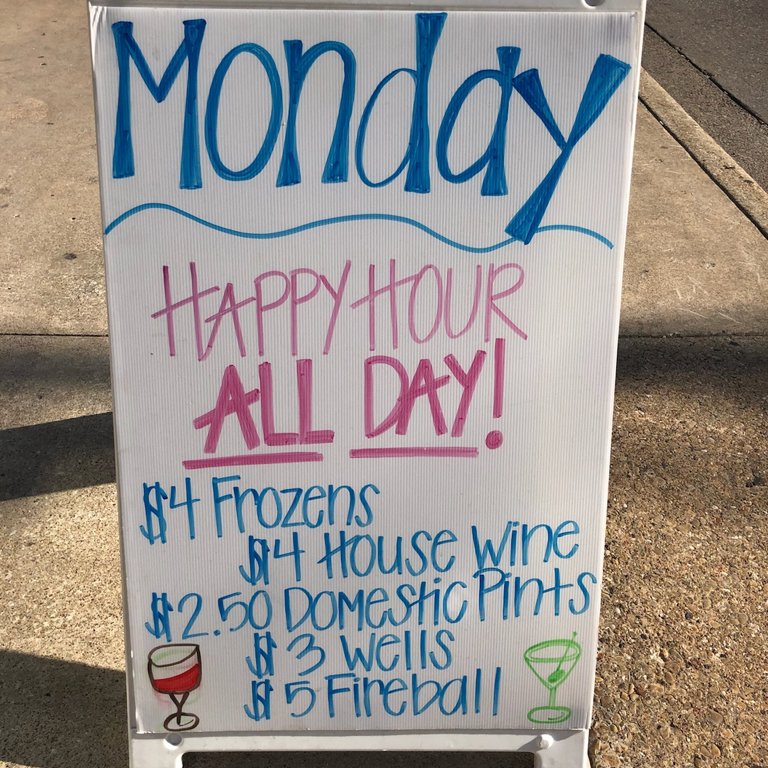 Monday
HAPPY HOUR
ALL DAY!
$4 Frozens
$4 House Wine
$2.50 Domestic Pints
$3 Wells
$5 Fireball